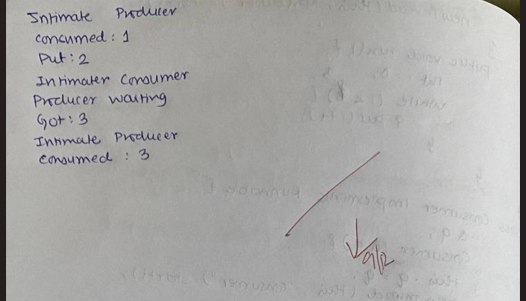 Intimate Producer
Consumed: 1
Put: 2
Intimater Consumer
Producer waiting
Got: 3
Intimate Producer
Consumed : 3